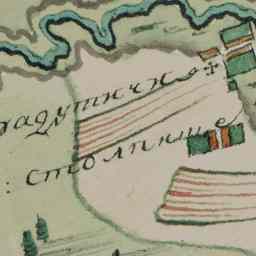 радутичи
: столпище